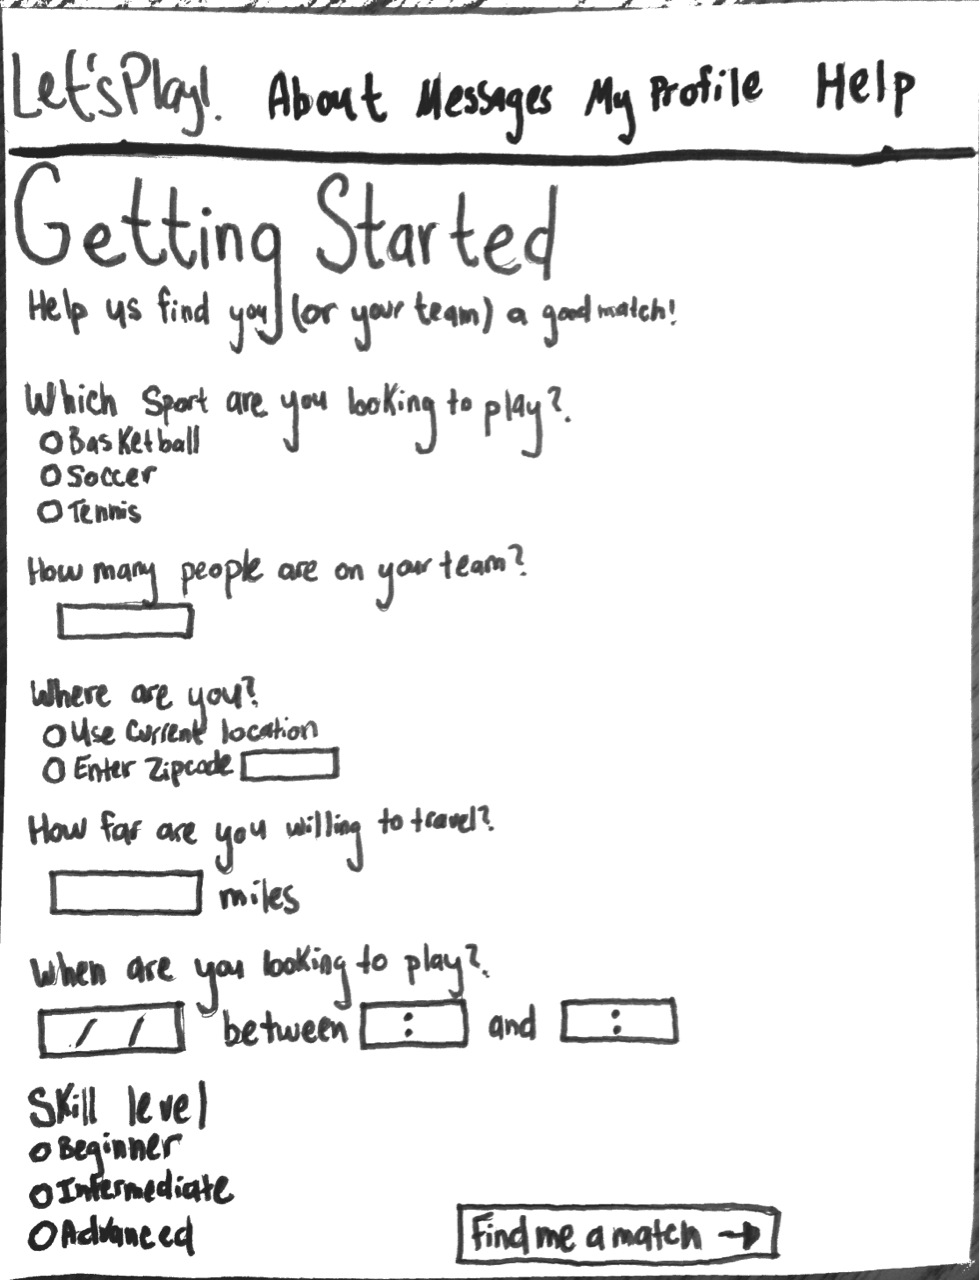 Let's Play! About Messages My Profile Help
Getting Started
Help us find you (or your team) a good match!
Which Sport are you looking to play?
Basketball
Soccer
Tennis
How many people are on your team?
Where are you?
Use Current location
Enter Zipcode
How far are you willing to travel?
miles
When are you looking to play?
/ / between : and :
Skill level
Beginner
Intermediate
Advanced
Find me a match →